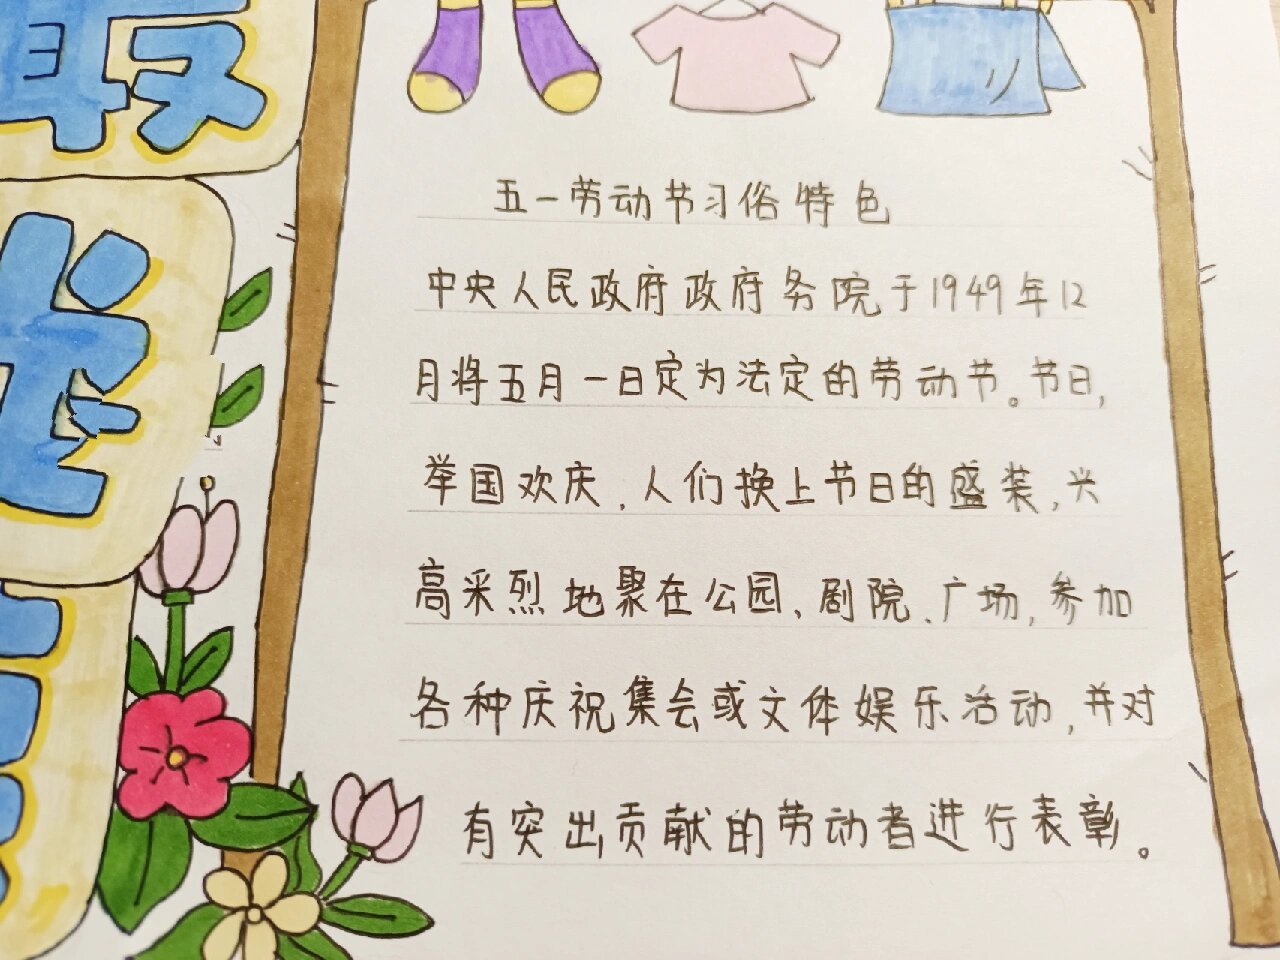 最
光
五一劳动节习俗特色
中央人民政府政府务院于1949年12
月将五月一日定为法定的劳动节。节日,
举国欢庆,人们换上节日的盛装,兴
高采烈地聚在公园、剧院、广场,参加
各种庆祝集会或文体娱乐活动,并对
有突出贡献的劳动者进行表彰。